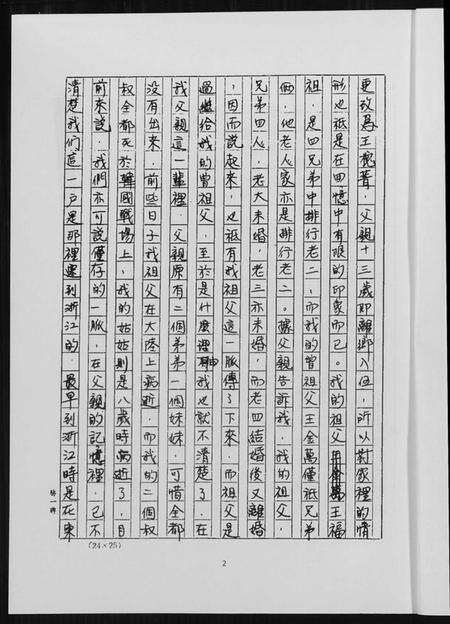 更改為王礼菁，父親十三歲即離鄉入伍，所以對家裡的情
形也祇是在回憶中有限的印象而已。我的祖父王福
祖，是四兄弟中排行老二，而我的曾祖父王金萬僅祇兄弟
倆，他老人家亦是排行老二。據父親告訴我，我的祖父，
兄弟四人，老大未婚，老三亦未婚，而老四結婚後又離婚
，因而說起來，也祇有我祖父這一脈傳了下來，而祖父是
過繼給我的曾祖父，至於是什麼理由我也就不清楚了，在
我父親這一輩裡，父親原有二個弟弟一個妹妹，可惜全都
沒有出來，前些日子我祖父在大陸上病逝，而我的二個叔
叔全都死於韓國戰場上，我的姑姑則是八歲時病逝了，目
前來說，我們亦可說僅存的一脈，在父親的記憶裡，已不
清楚我們這一戶是那裡遷到浙江的，最早到浙江時是在東
(24×25)
2